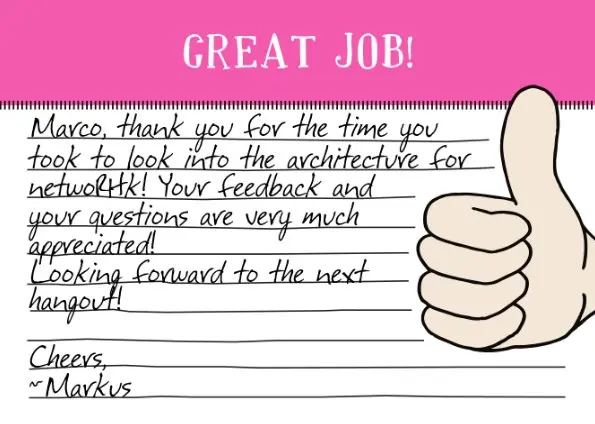 GREAT JOB!
Marco, thank you for the time you
took to look into the architecture for
netwoRHk! Your feedback and
your questions are very much
appreciated!
Looking forward to the next
hangout!
Cheers,
~Markus